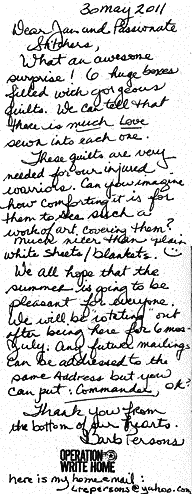 30 May 2011
Dear Jan and Passionate
Stitchers,
What an awesome
surprise! 6 huge boxes
filled with gorgeous
quilts. We can tell that
there is much Love
sewn into each one.
These quilts are very
needed for our injured
warriors. Can you imagine
how comforting it is for
them to see such a
work of art, covering them?
Much nicer than plain
white sheets/blankets. :)
We all hope that the
summer is going to be
pleasant for everyone.
We will be "rotating" out
after being here for 6 mos.
July. Any future mailings
can be addressed to the
same Address but you
can put: Commander, OK?
Thank you from
the bottom of our hearts.
Barb Persons
OPERATION
WRITE HOME
here is my home email:
@yahoo.com